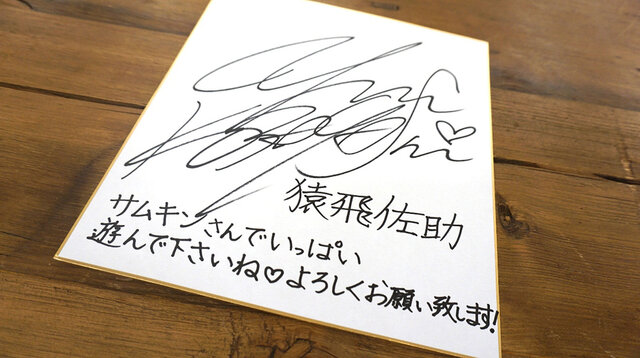 猿飛佐助
サムキンさんでいっぱい
遊んで下さいね♡よろしくお願い致します!